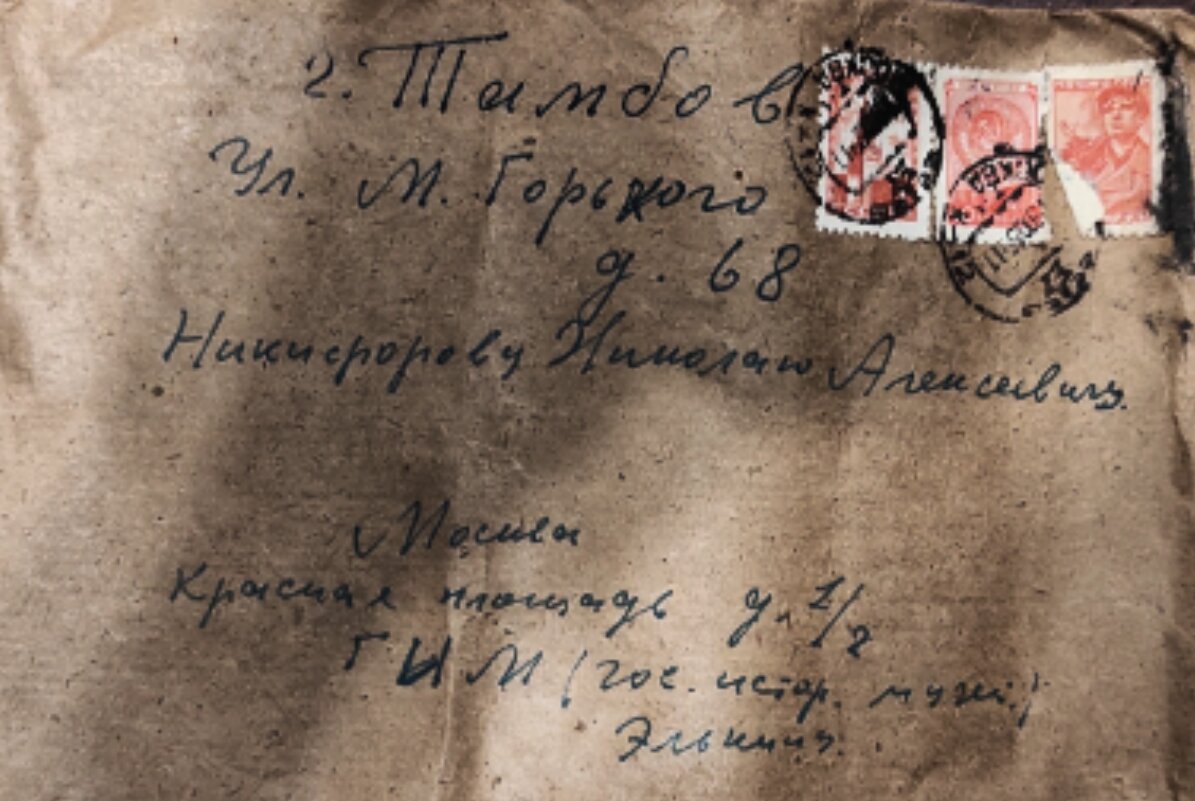 г. Тамбов
Ул. М. Горького
д. 68
Никифорову Николаю Алексеевичу.
Москва
Красная площадь д. 1/2
ГИМ (гос. истор. музей)
МОСКВА